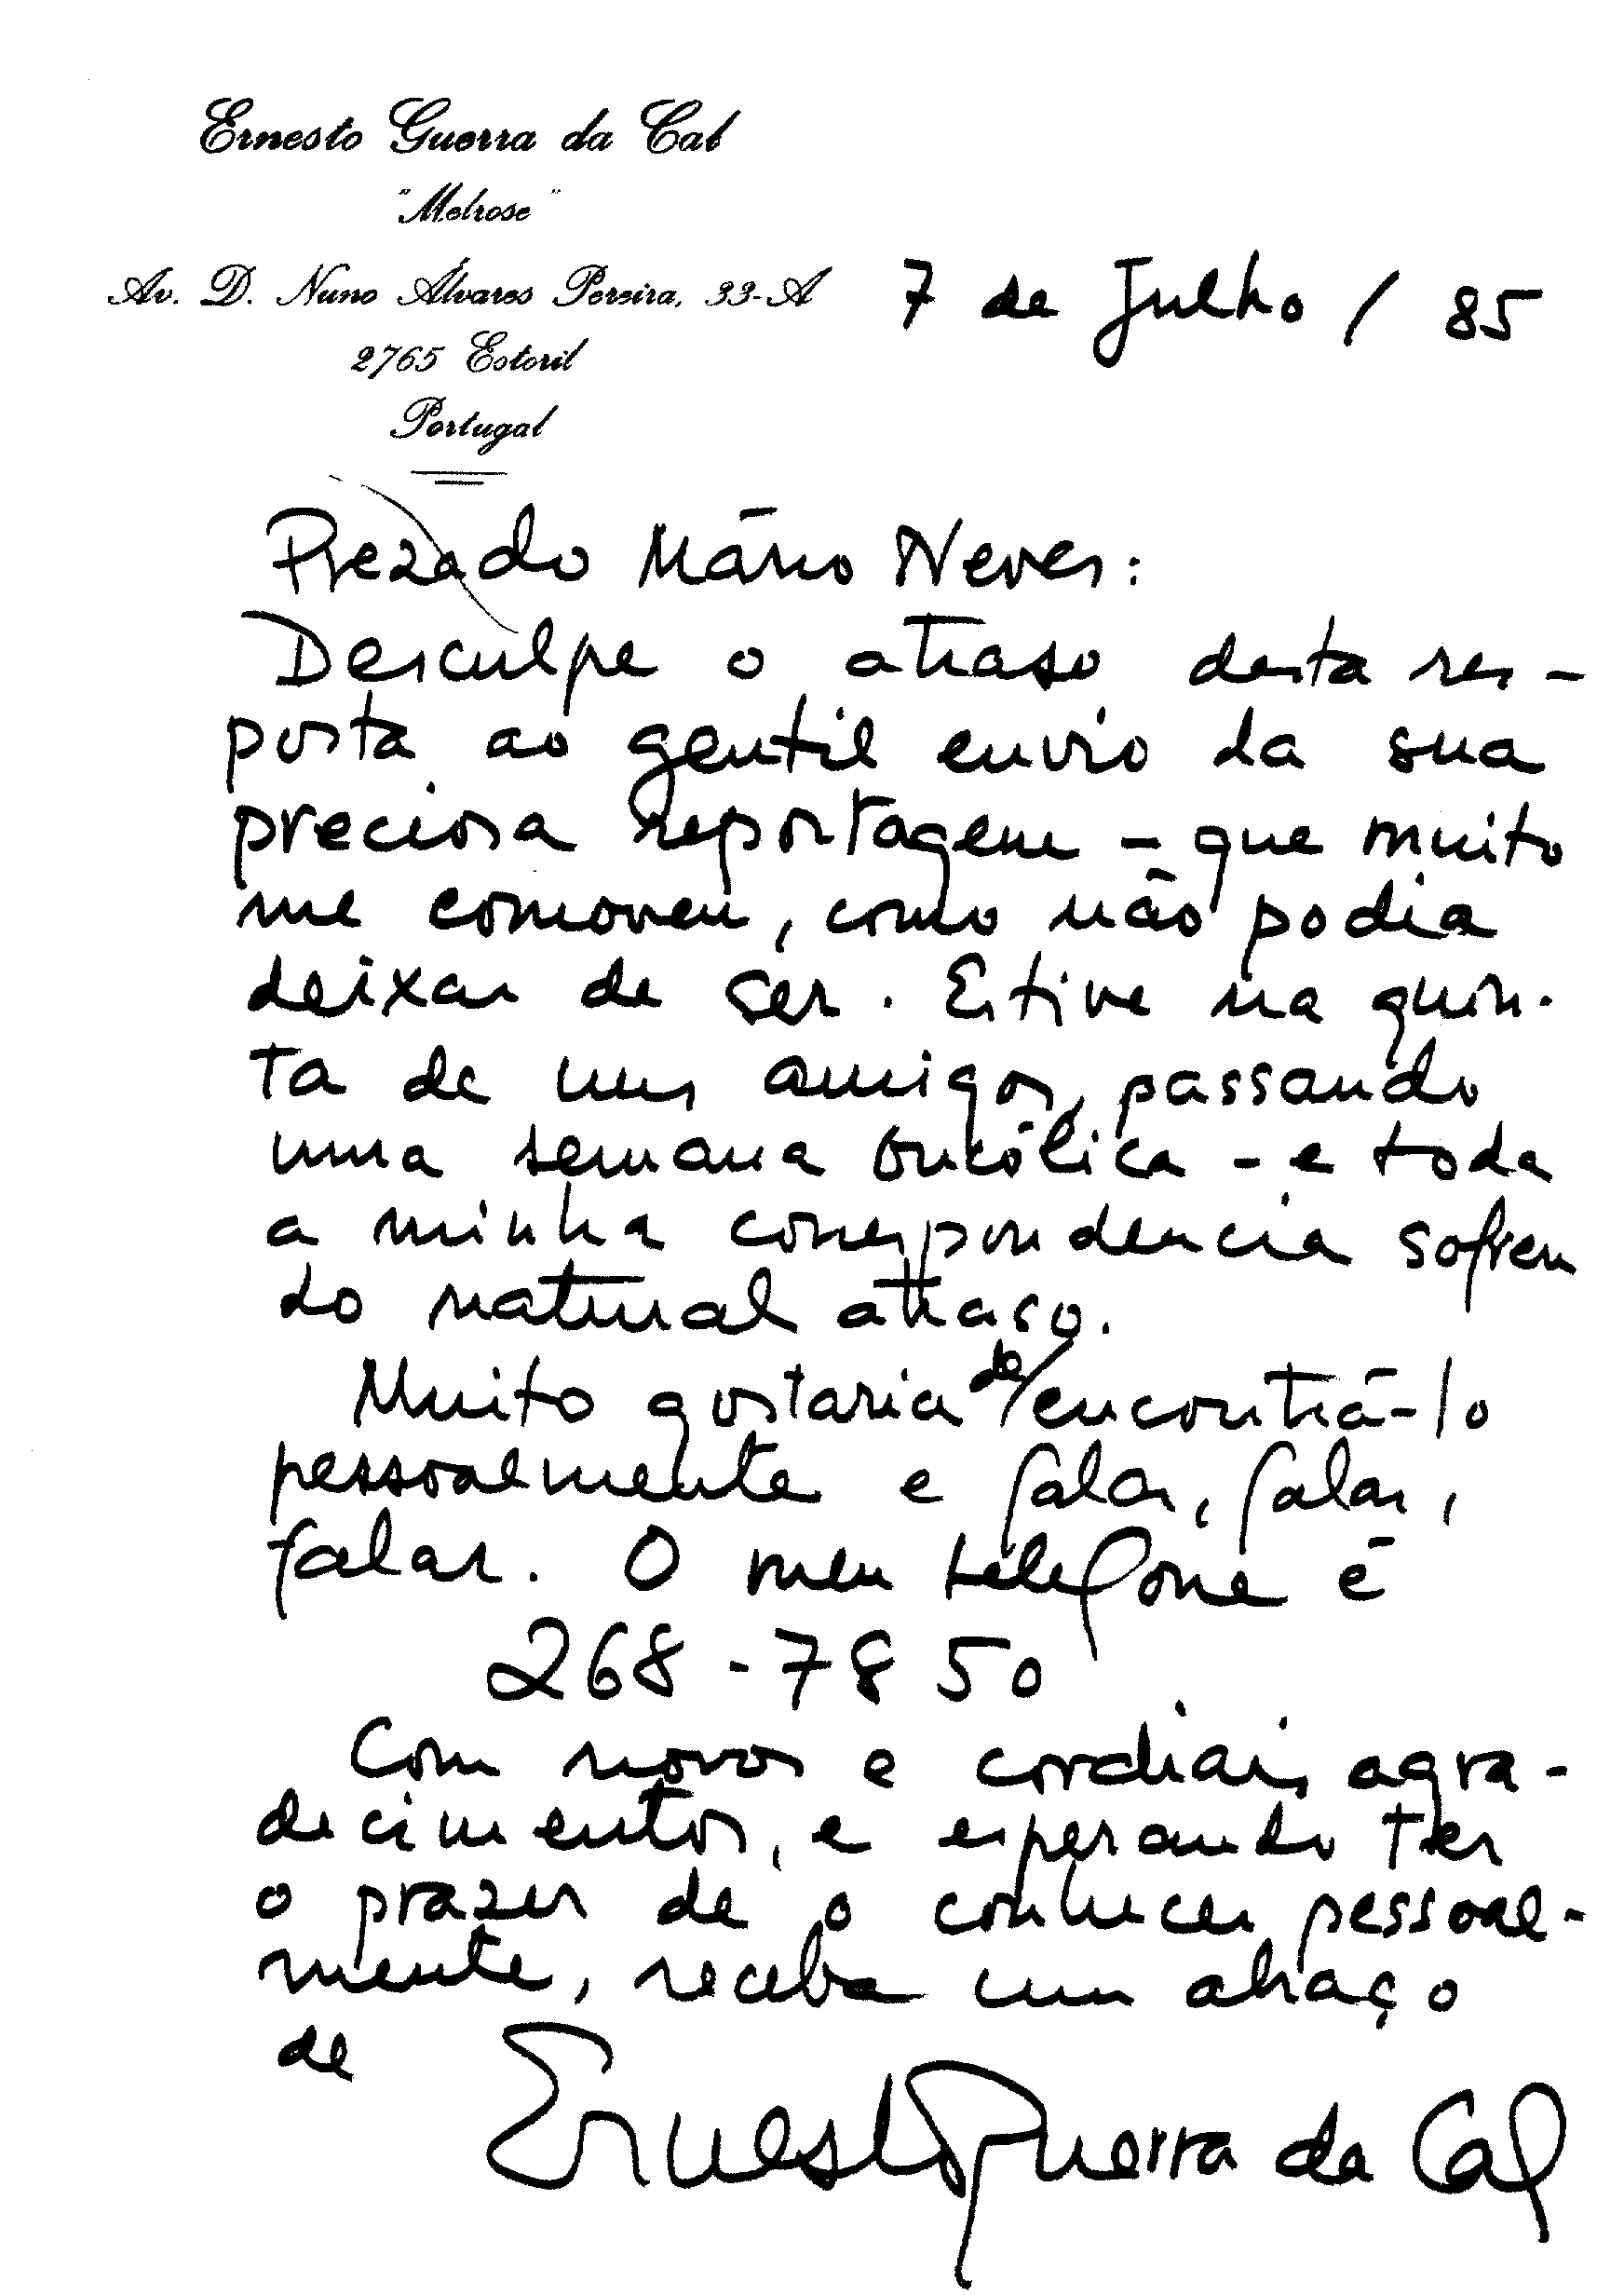 Ernesto Guerra da Cal
"Melrose"
Av. D. Nuno Álvares Pereira, 33-A
7 de Julho / 85
2765 Estoril
Portugal
Prezado Mário Neves:
Desculpe o atraso desta res-
posta ao gentil envio da sua
preciosa reportagem - que muito
me comoveu, como não podia
deixar de ser. Estive na quin-
ta de uns amigos, passando
uma semana bucólica - e toda
a minha correspondencia sofreu
do natural atraso.
Muito gostaria de/encontrá-lo
pessoalmente e falar, falar,
falar. O meu telefone é
268-7850
Com novos e cordiais agra-
decimentos, e esperando ter
o prazer de o conhecer pessoal-
mente, receba um abraço
de Ernesto Guerra da Cal